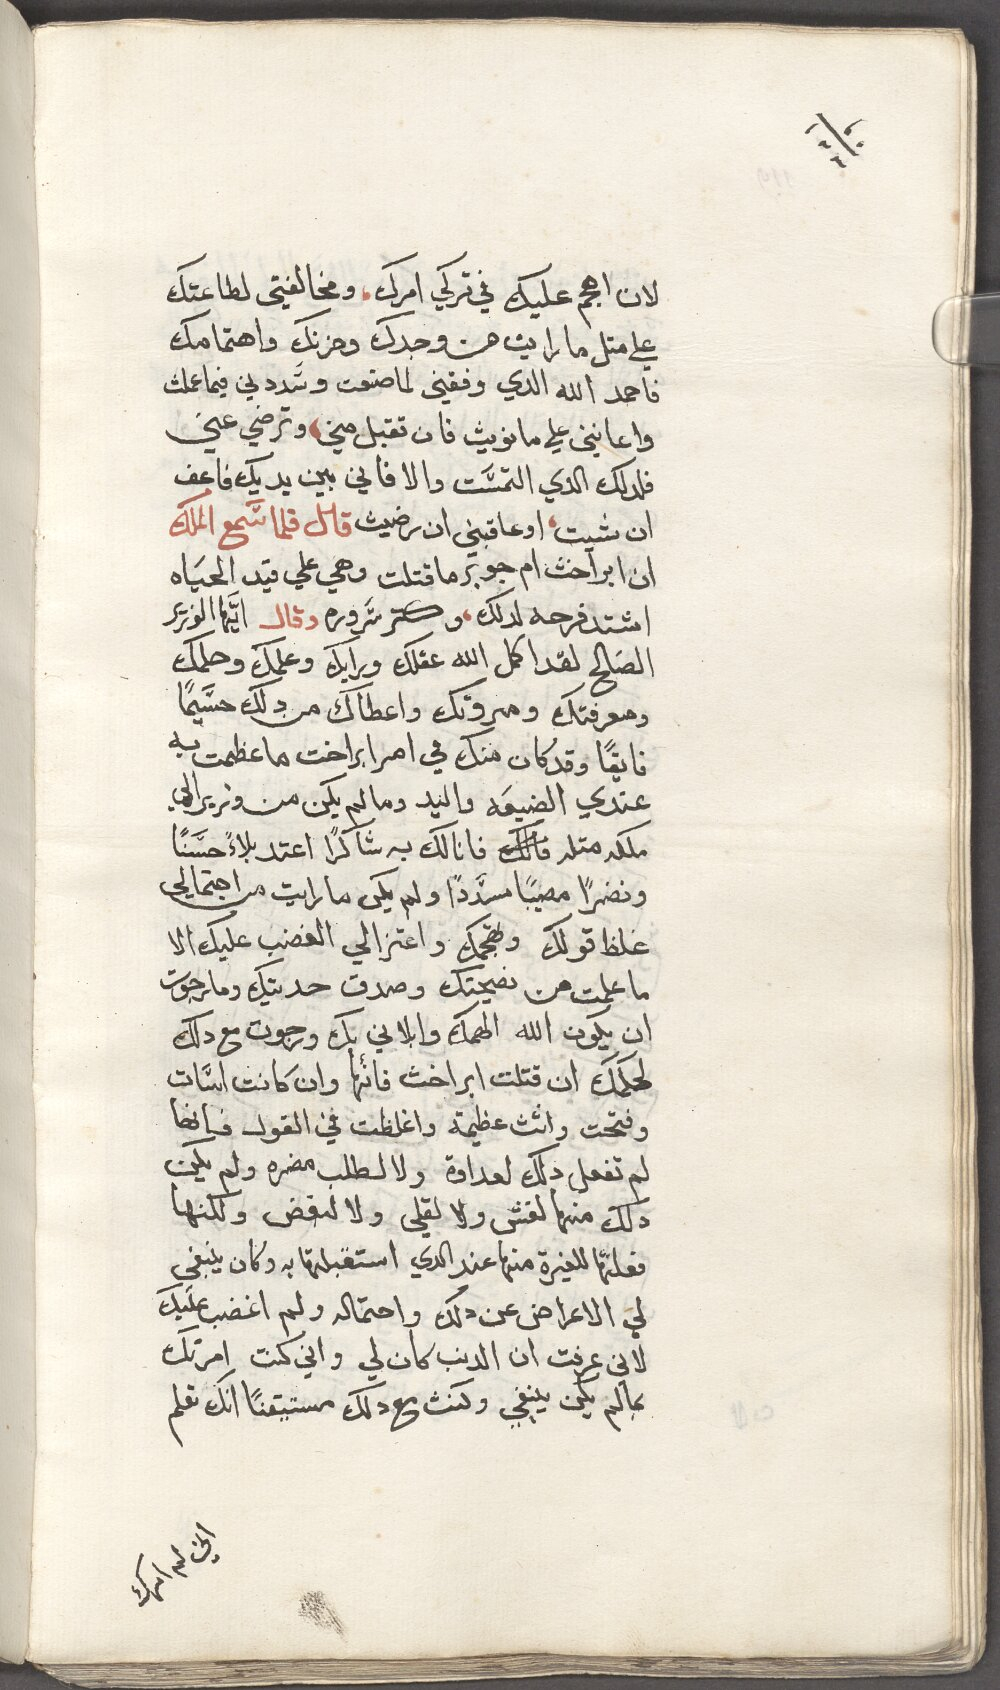 لان اهجم عليك في تركي امرك، ومخالفيتي لطاعتك
علي متل ما رايت من وجدك وحزنك واهتمامك
فاحمد الله الدي وفقني لما صنعت وسَّددني فيما عملت
واعانني علي ما نويت فان تقبل مني، وترضي عني
فلدلك الدي التمسَّت والا فاني بين يديك فاعف
ان شيت، او عاقبني ان رضيت قال فلما سَّمع الملك
ان ابراخت ام جوبر ما قتلت وهي علي قيد الحيَاه
اشتد فرحه لدلك، وكتر سَّروره وقال ايَّها الوزير
الصَالح لقد اكمل الله عقلك ورايك وعلمك وحلمك
ومعرفتك ومروتك واعطاك من دلك جسَّيمًا
فايقًا وقد كان منك في امر ابراخت ما عظمت به
عندي الضيعَه واليد وما لم يكن من وزير الي
ملكه متله فانالك به شاكرًا اعتد بلاءً حسَّنًا
ونضرًا مصيبًا مسَّددًا ولم يكن ما رايت من احتمالي
غلظ قولك وتهجمك واعتزالي الغضب عليك الا
ما علمت من نصيحتك وصدق حديتك وما رجوت
ان يكون الله الهمك وابلاني بك ورجوت مع دلك
لحكمك ان قتلت ابراخت فانها وان كانت اسَّات
وقبحت واتت عظيمة واغلظت في القول فانها
لم تفعل دلك لعداوة ولا لطلب مضره ولم يكن
دلك منها لغش ولا لقلي ولا لبغض ولكنها
فعلتها للغيرة منها عند الدي استقبلتها به وكان ينبغي
لي الاعراض عن دلك واحتماله ولم اغضب عليك
لاني عرفت ان الدنب كان لي واني كنت امرتك
بما لم يكن ينبغي وكنت مع دلك مستيقنًا انك تعلم